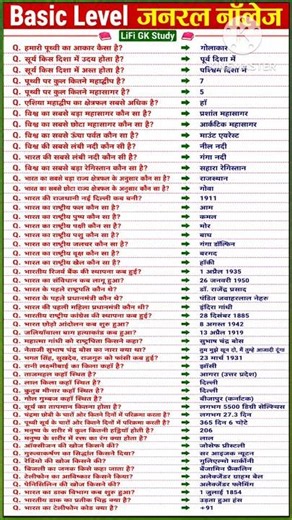 Basic Level जनरल नॉलेज
LiFi GK Study
Q. हमारी पृथ्वी का आकार कैसा है? गोलाकार
Q. सूर्य किस दिशा में उदय होता है? पूर्व दिशा में
Q. सूर्य किस दिशा में अस्त होता है? पश्चिम दिशा में
Q. पृथ्वी पर कुल कितने महाद्वीप है? 7
Q. पृथ्वी पर कुल कितने महासागर है? 5
Q. एशिया महाद्वीप का क्षेत्रफल सबसे अधिक है? हाँ
Q. विश्व का सबसे बड़ा महासागर कौन सा है? प्रशांत महासागर
Q. विश्व का सबसे छोटा महासागर कौन सा है? आर्कटिक महासागर
Q. विश्व का सबसे ऊंचा पर्वत कौन सा है? माउंट एवरेस्ट
Q. विश्व की सबसे लंबी नदी कौन सी है? नील नदी
Q. भारत की सबसे लंबी नदी कौन सी है? गंगा नदी
Q. विश्व का सबसे बड़ा रेगिस्तान कौन सा है? सहारा रेगिस्तान
Q. भारत का सबसे बड़ा राज्य क्षेत्रफल के अनुसार कौन सा है? राजस्थान
Q. भारत का सबसे छोटा राज्य क्षेत्रफल के अनुसार कौन सा है? गोवा
Q. भारत की राजधानी नई दिल्ली कब बनी? 1911
Q. भारत का राष्ट्रीय फल कौन सा है? आम
Q. भारत का राष्ट्रीय पुष्प कौन सा है? कमल
Q. भारत का राष्ट्रीय पक्षी कौन सा है? मोर
Q. भारत का राष्ट्रीय पशु कौन सा है? बाघ
Q. भारत का राष्ट्रीय जलचर कौन सा है? गंगा डॉल्फिन
Q. भारत का राष्ट्रीय वृक्ष कौन सा है? बरगद
Q. भारत का राष्ट्रीय खेल कौन सा है? हॉकी
Q. भारतीय रिजर्व बैंक की स्थापना कब हुई? 1 अप्रैल 1935
Q. भारत का संविधान कब लागू हुआ? 26 जनवरी 1950
Q. भारत के पहले राष्ट्रपति कौन थे? डॉ. राजेंद्र प्रसाद
Q. भारत के पहले प्रधानमंत्री कौन थे? पंडित जवाहरलाल नेहरू
Q. भारत की पहली महिला प्रधानमंत्री कौन थी? इंदिरा गांधी
Q. भारतीय राष्ट्रीय कांग्रेस की स्थापना कब हुई? 28 दिसंबर 1885
Q. भारत छोड़ो आंदोलन कब शुरू हुआ? 8 अगस्त 1942
Q. जलियांवाला बाग हत्याकांड कब हुआ? 13 अप्रैल 1919
Q. महात्मा गांधी को राष्ट्रपिता किसने कहा? सुभाष चंद्र बोस
Q. नेताजी सुभाष चंद्र बोस का नारा क्या था? तुम मुझे खून दो, मैं तुम्हें आजादी दूंगा
Q. भगत सिंह, सुखदेव, राजगुरु को फांसी कब हुई? 23 मार्च 1931
Q. रानी लक्ष्मीबाई का किला कहां है? झाँसी
Q. ताजमहल कहाँ स्थित है? आगरा (उत्तर प्रदेश)
Q. लाल किला कहाँ स्थित है? दिल्ली
Q. कुतुब मीनार कहाँ स्थित है? दिल्ली
Q. गोल गुम्बज कहाँ स्थित है? बीजापुर (कर्नाटक)
Q. सूर्य का तापमान कितना होता है? लगभग 5500 डिग्री सेल्सियस
Q. चंद्रमा पृथ्वी के चारों ओर कितने दिनों में परिक्रमा करता है? लगभग 27.3 दिन
Q. पृथ्वी सूर्य के चारों ओर कितने दिनों में परिक्रमा करती है? 365 दिन 6 घंटे
Q. मनुष्य के शरीर में कुल कितनी हड्डियाँ होती हैं? 206
Q. मनुष्य के शरीर में रक्त का रंग क्या होता है? लाल
Q. ऑक्सीजन की खोज किसने की? जोसेफ प्रीस्टली
Q. गुरुत्वाकर्षण का सिद्धांत किसने दिया? सर आइजक न्यूटन
Q. रेडियो की खोज किसने की? गुलिएल्मो मार्कोनी
Q. बिजली का जनक किसे कहा जाता है? बेंजामिन फ्रैंकलिन
Q. टेलीफोन का आविष्कार किसने किया? अलेक्जेंडर ग्राहम बेल
Q. पेनिसिलिन की खोज किसने की? अलेक्जेंडर फ्लेमिंग
Q. भारत का डाक विभाग कब शुरू हुआ? 1 जुलाई 1854
Q. भारतीय डाक का प्रतीक चिह्न क्या है?
Q. भारत का टेलीफोन कोड क्या है? +91